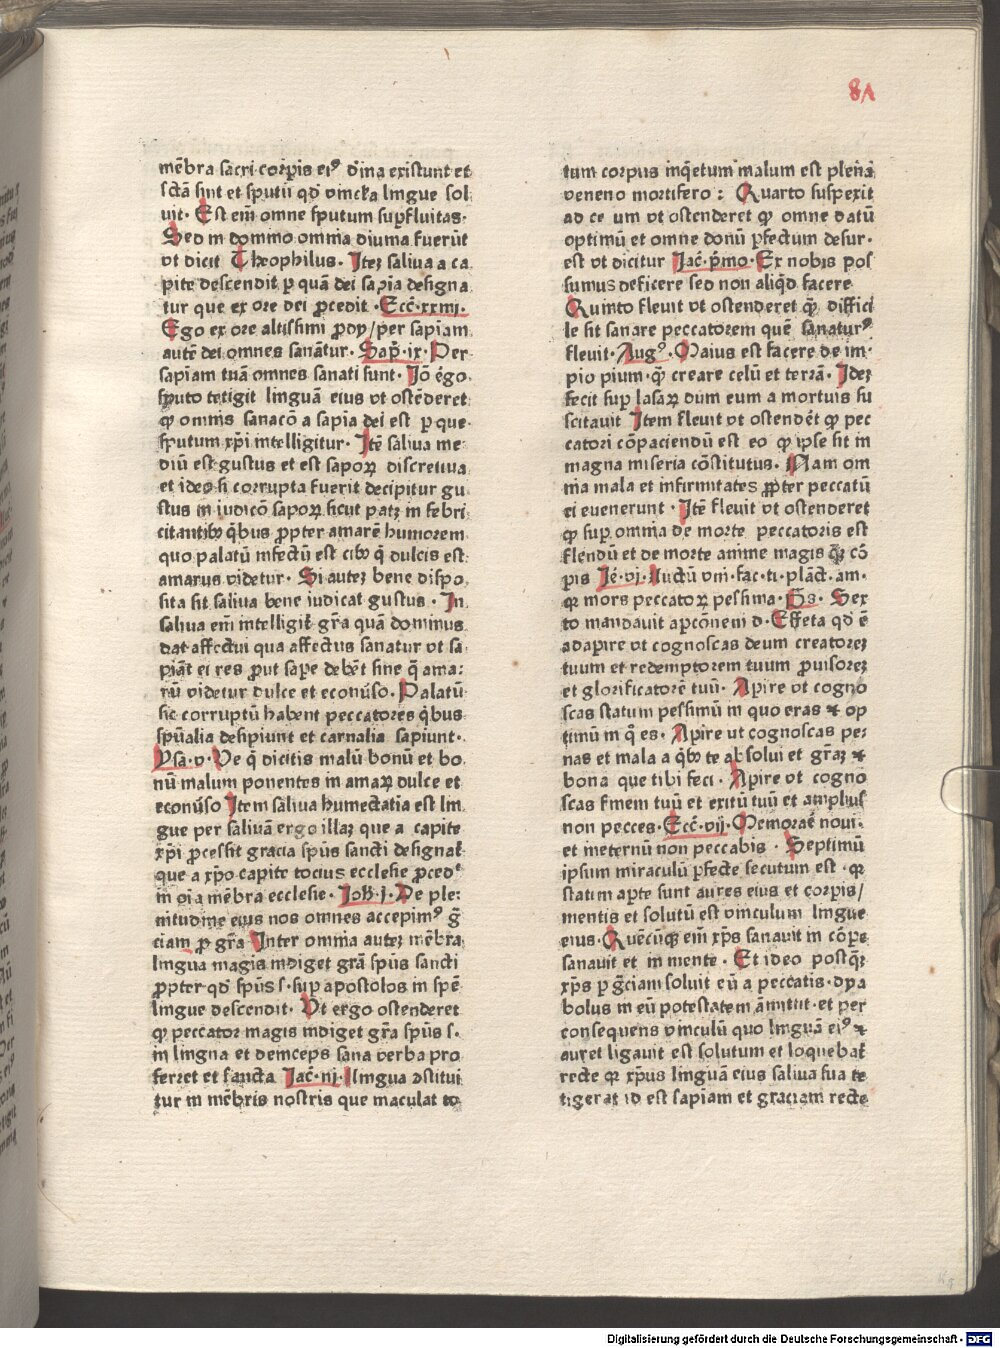 8Λ
mēbra sacri corpis eiꝰ diuina existunt et
sctā sint et sputū qd vincla lingue sol
uit. Est em̄ omne sputum supfluitas.
Sed in domino omnia diuina fuerūt
vt dicit Theophilus. Iteꝫ saliua a ca
pite descendit p quā dei sapīa designa
tur que ex ore dei pcedit. Eccꝰ. xxiiij.
Ego ex ore altissimi pdij / per sapīam
autē dei omnes sanātur. Sap̄. ix. Per
sapīam tuā omnes sanati sunt. Iō ego
sputo tetigit linguā eius vt ostēderet
ꝙ omnis sanacō a sapīa dei est p que
sputum xp̄i intelligitur. Itē saliua me
diū est gustus et est sapoꝝ discretiua
et ideo si corrupta fuerit decipitur gu
stus in iudicō sapoꝝ sicut patꝫ in febri
citantibꝰ q̄bus ppter amarē humorem
quo palatū infectū est cibꝰ q̄ dulcis est
amarus videtur. Si auteꝫ bene dispo
sita sit saliua bene iudicat gustus. In
saliua em̄ intelligit gr̄a quā dominus
dat affectui qua affectus sanatur vt sa
piāt ei res put sape debēt sine q̄ ama
rū videtur dulce et econūso. Palatū
sic corruptū habent peccatores q̄bus
spūalia desipiunt et carnalia sapiunt.
Ysa. v. Ve q̄ dicitis malū bonū et bo
nū malum ponentes in amaꝝ dulce et
econūso Item saliua humectatia est lin
gue per saliuā ergo illaꝫ que a capite
xp̄i pcessit gracia spūs sancti designat
que a xpo capite tocius ecclesie pcedꝰ
in oīa mēbra ecclesie. Joh̄. j. De ple
nitudine eius nos omnes accepimꝰ gr̄
ciam p gr̄a Inter omnia auteꝫ mēbra
lingua magis indiget grā spūs sancti
ppter qd spūs s. sup apostolos in spē
lingue descendit. Vt ergo ostenderet
ꝙ peccator magis indiget gr̄a spūs s.
in lingna et deinceps sana verba pro
ferret et sancta Iac̄. iij. lingua ꝯstitui
tur in mēbris nostris que maculat to
tum corpus inq̄etum malum est plena
veneno mortifero: Quarto suspexit
ad ce um vt ostenderet ꝙ omne datū
optimū et omne donū pfectum desur
est vt dicitur Iac̄. pmo. Ex nobis pos
sumus deficere sed non aliqd facere
Quinto fleuit vt ostenderet ꝙ diffici
le sit sanare peccatorem quē sanaturꝰ
fleuit. Augꝰ. Maius est facere de im
pio pium ꝙ creare celū et terrā. Ideꝫ
fecit sup lasaꝝ dum eum a mortuis su
scitauit Item fleuit vt ostendēt ꝙ pec
catori cōpaciendū est eo ꝙ ipse sit in
magna miseria cōstitutus. Nam om
nia mala et infirmitates ppter peccatū
ei euenerunt. Itē fleuit vt ostenderet
ꝙ sup omnia de morte peccatoris est
flendū et de morte anime magis ꝙ cō
pis Ie. vj. luctū vni. fac. ti. plāct. am.
qꝛ mors peccatoꝝ pessima. Gs. Sex
to mandauit apcōnem d. Effeta qd ē
adapire vt cognoscas deum creatoreꝫ
tuum et redemptorem tuum puisoreꝫ
et glorificatorē tuū. Apire vt cogno
scas statum pessimū in quo eras ⁊ op
timū in q̄ es. Apire ut cognoscas pe
nas et mala a qbꝰ te absolui et grāꝫ ⁊
bona que tibi feci. Apire vt cogno
scas finem tuū et exitū tuū et amplius
non pecces. Eccꝰ. vij. Memorarē noui.
et ineternū non peccabis. Septimū
ipsum miraculū pfecte secutum est. qꝛ
statim apte sunt aures eius et corpis /
mentis et solutū est vinculum lingue
eius. Quēcūqꝫ em̄ xp̄s sanauit in cōpe
sanauit et in mente. Et ideo postꝙ
xp̄s p gr̄ciam soluit eū a peccatis. dya
bolus in eū potestatem āmittit. et per
consequens vinculū quo linguā eiꝰ ⁊
aures ligauit est solutum et loquebat
recte qꝛ xp̄us linguā eius saliua sua te
tigerat id est sapīam et graciam recte
Digitalisierung gefördert durch die Deutsche Forschungsgemeinschaft - DFG